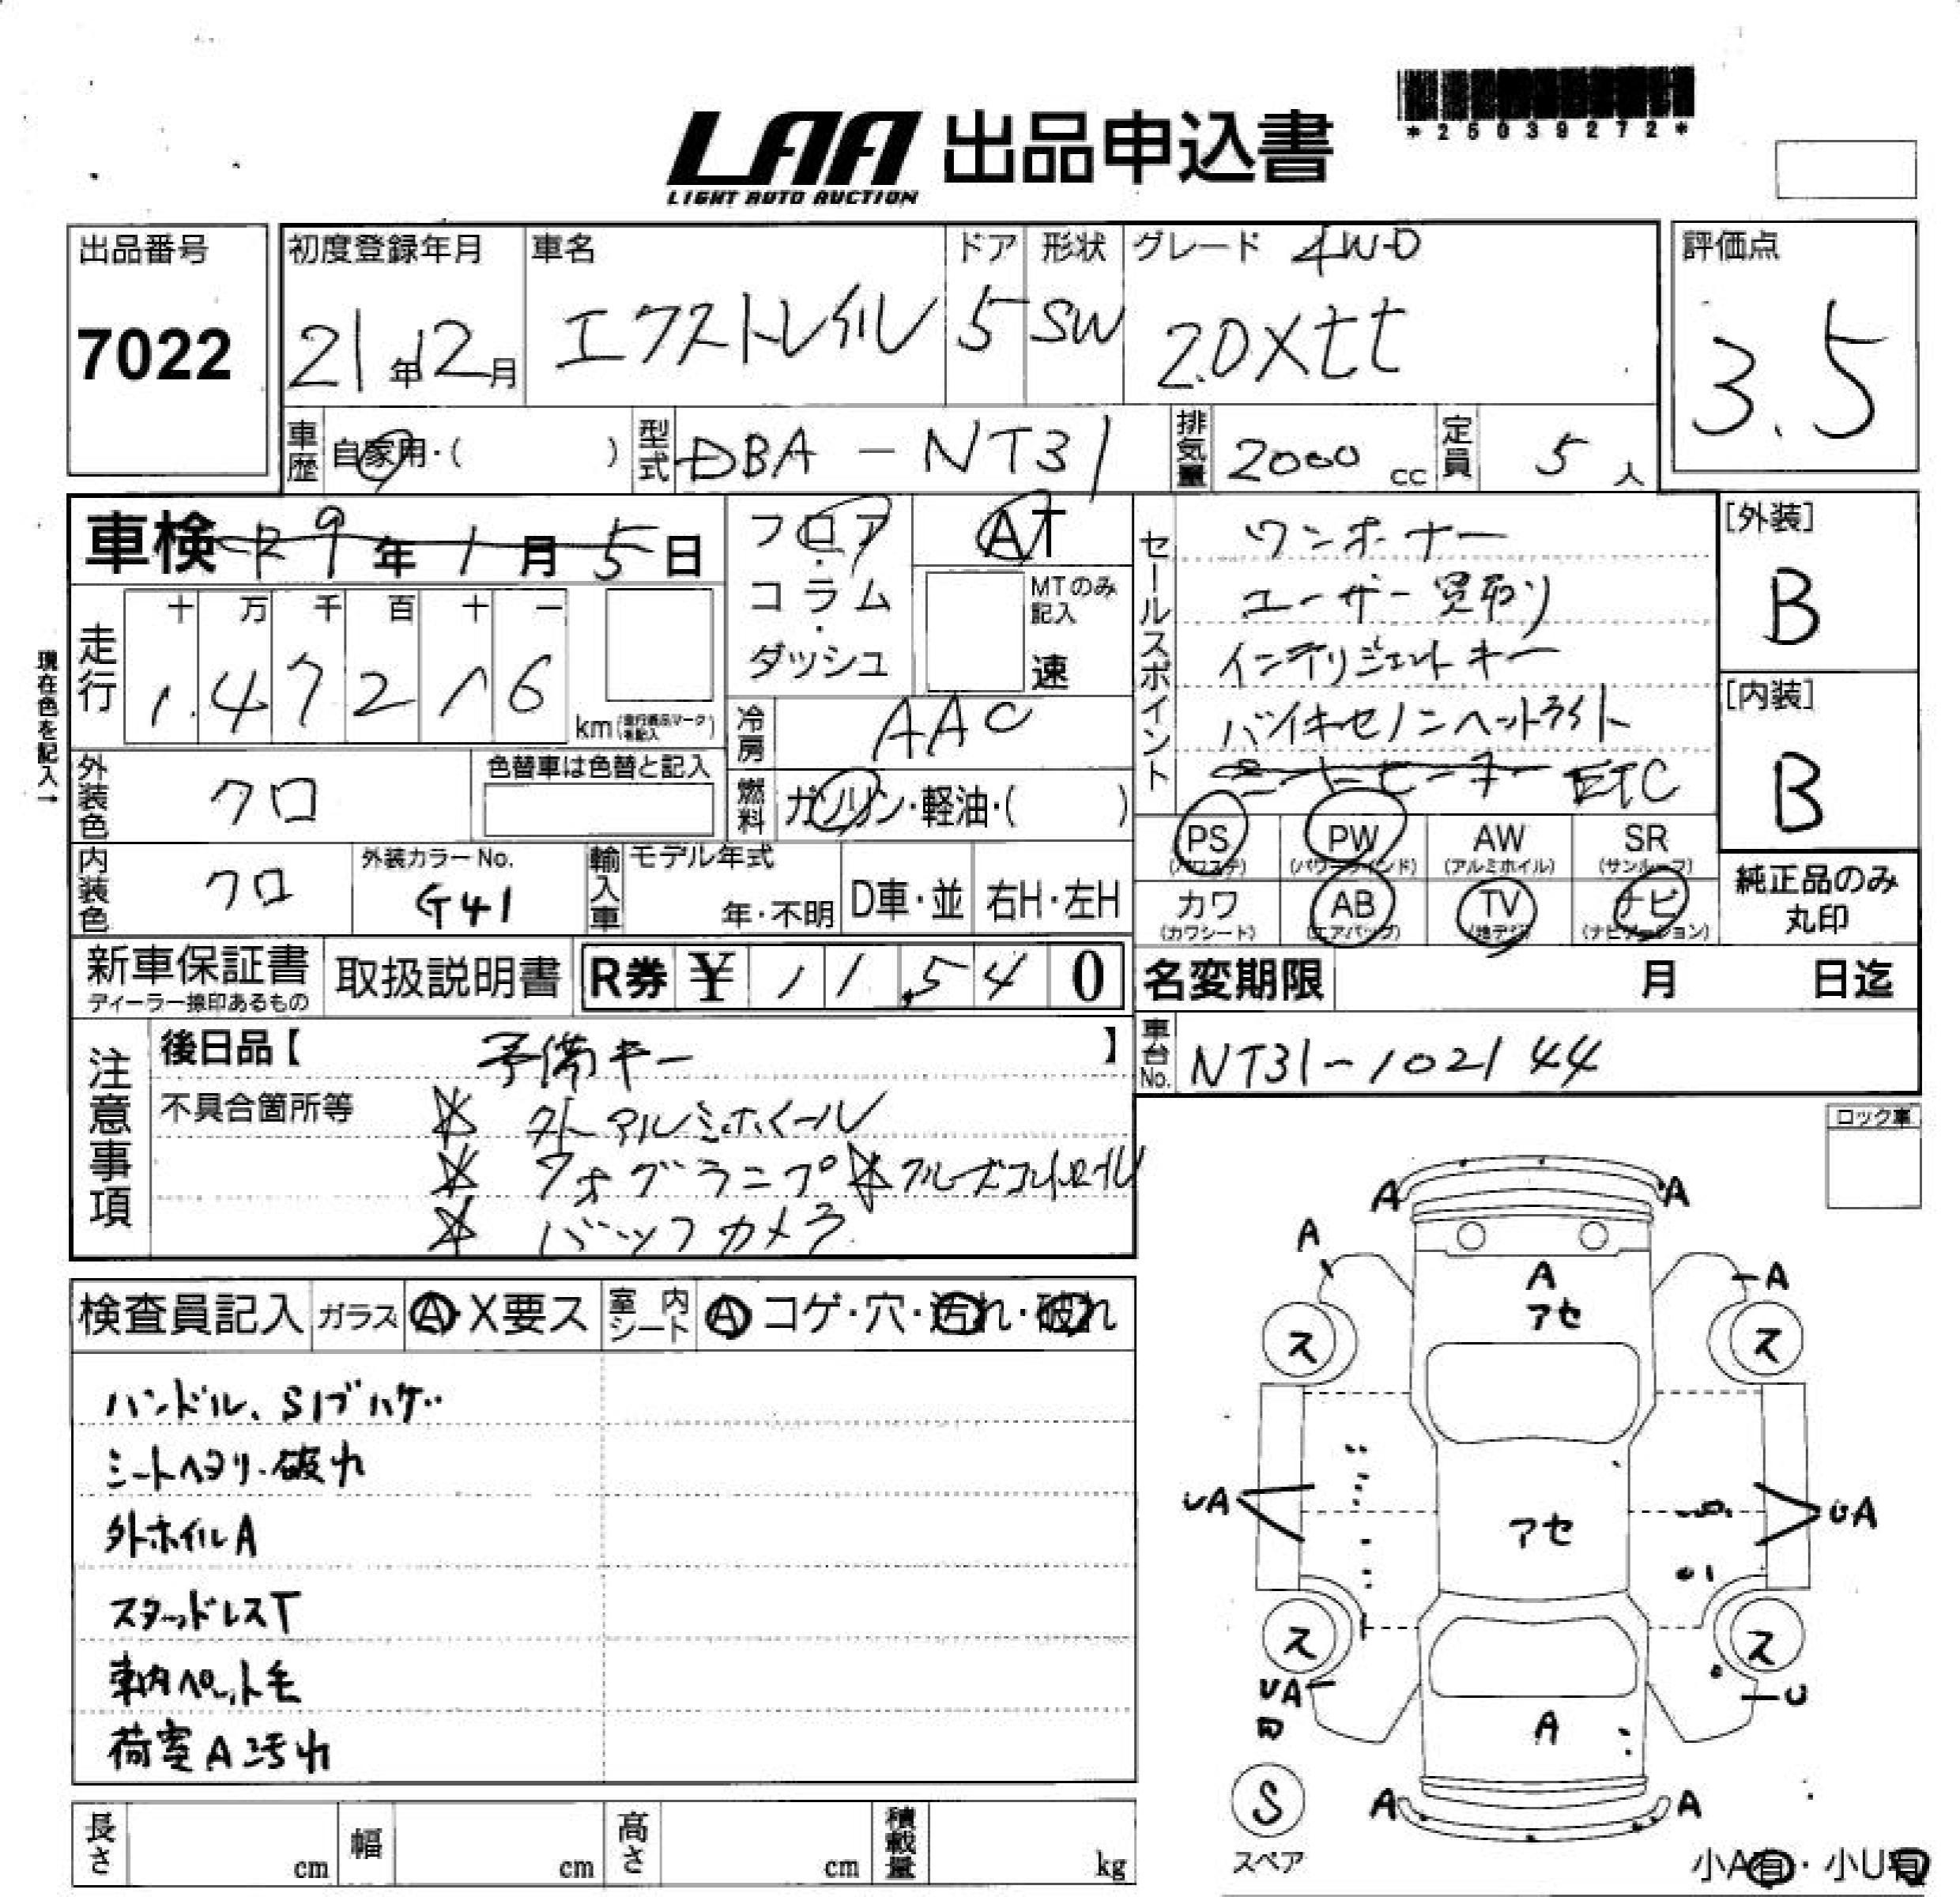 LAA 出品申込書
LIGHT AUTO AUCTION
*25039272*
出品番号
7022
初度登録年月
21年12月
車名
エクストレイル
ドア
5
形状
SW
グレード 4WD
20Xtt
評価点
3.5
車歴 自家用・( )
型式 DBA-NT31
排気量 2000 cc
定員 5 人
車検 R9年1月5日
フロア・コラム・ダッシュ
AT
MTのみ記入
速
走行
十 万 千 百 十 一
1.47216
km
現在色を記入→
冷房 AAC
外装色 クロ
色替車は色替と記入
燃料 ガソリン・軽油・( )
内装色 クロ
外装カラーNo.
G41
輸入車
モデル年式
年・不明
D車・並
右H・左H
セールスポイント
ワンオーナー
ユーザー買取り
インテリジェントキー
バイキセノンヘッドライト
シートヒーター ETC
[外装]
B
[内装]
B
PS PW AW SR
(パワステ) (パワーウィンド) (アルミホイル) (サンルーフ)
カワ AB TV ナビ
(カワシート) (エアバッグ) (地デジ) (ナビゲーション)
純正品のみ丸印
新車保証書
ディーラー捺印あるもの
取扱説明書
R券 ¥ 11,540
名変期限 月 日迄
車台No. NT31-102144
注意事項
後日品【 予備キー 】
不具合箇所等
☆ 外アルミホイール
☆ フォグランプ ☆クルーズコントロール
☆ バックカメラ
ロック車
検査員記入 ガラス A・X要ス 室内シート A コゲ・穴・汚れ・破れ
ハンドル、Sノブハゲ
シートヘタリ・破れ
外ホイルA
スタッドレスT
車内ペット毛
荷室A汚れ
A A
A A
A
アセ
ス ス
UA アセ UA
ス ス
UA U
A
S
スペア
A A
小A有・小U有
長さ cm 幅 cm 高さ cm 積載量 kg